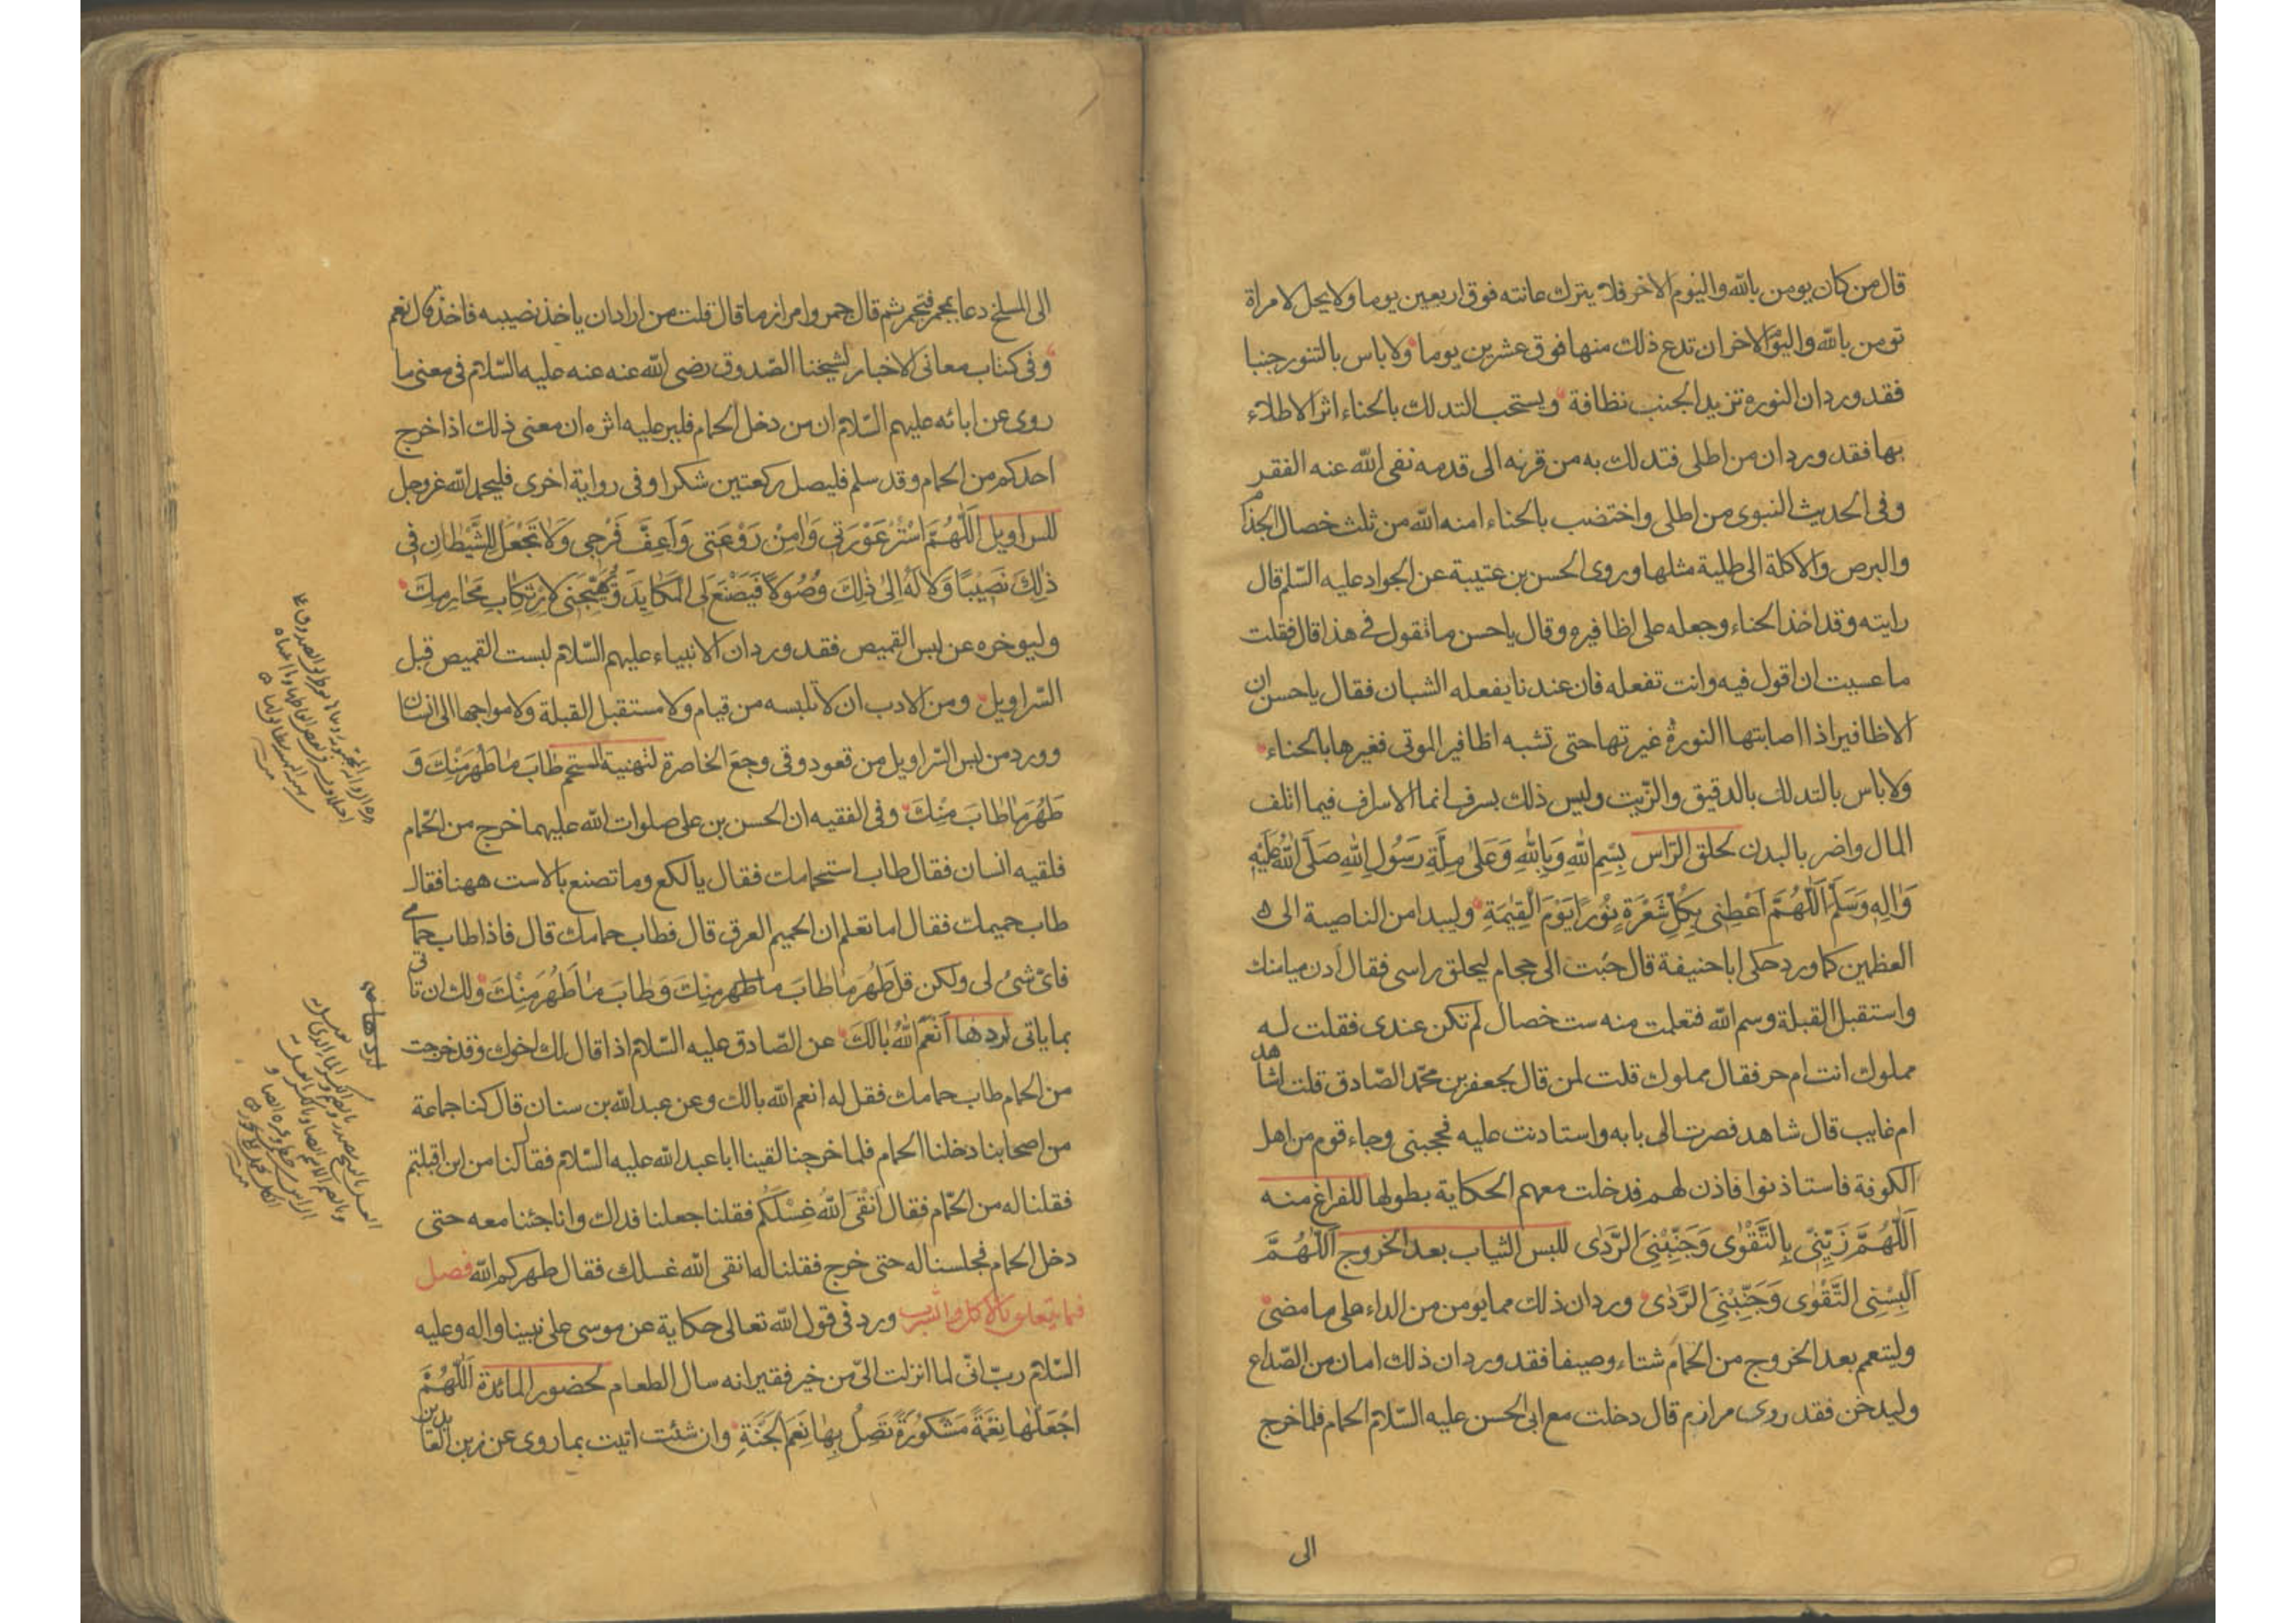 قال من كان يومن بالله واليوم الاخر فلا يترك عانته فوق اربعين يوما ولا يحل لامراة
تومن بالله واليوم الاخر ان تدع ذلك منها فوق عشرين يوما ولا باس بالتنور جنبا
فقد ورد ان النورة تزيد الجنب نظافة ويستحب التدلك بالحناء اثر الاطلاء
بها فقد ورد ان من اطلى فتدلك به من قرنه الى قدمه نفى الله عنه الفقر
وفى الحديث النبوى من اطلى واختضب بالحناء امنه الله من ثلث خصال الجذام
والبرص والاكلة الى طلية مثلها وروى الحسن بن عتيبة عن الجواد عليه السلم قال
رايته وقد اخذ الحناء وجعله على اظافيره وقال يا حسن ما تقول فى هذا قال فقلت
ما عسيت ان اقول فيه وانت تفعله فان عندنا يفعله الشبان فقال يا حسن ان
الاظافير اذا اصابتها النورة غيرتها حتى تشبه اظافير الموتى فغيرها بالحناء
ولا باس بالتدلك بالدقيق والزيت وليس ذلك بسرف انما الاسراف فيما اتلف
المال واضر بالبدن لحلق الراس بِسْمِ اللهِ وَبِاللهِ وَعَلىٰ مِلَّةِ رَسُولِ اللهِ صَلَّى اللهُ عَلَيْهِ
وَاٰلِهِ وَسَلَّمَ اَللّٰهُمَّ اَعْطِنِى بِكُلِّ شَعْرَةٍ نُورًا يَوْمَ الْقِيٰمَةِ وليبدا من الناصية الى
العظمين كما ورد حكى ابا حنيفة قال جئت الى حجام ليحلق راسى فقال ادن ميامنك
واستقبل القبلة وسم الله فتعلمت منه ست خصال لم تكن عندى فقلت له
مملوك انت ام حر فقال مملوك قلت لمن قال لجعفر بن محمد الصادق قلت اشاهد
ام غايب قال شاهد فصرت الى بابه واستاذنت عليه فحجبنى وجاء قوم من اهل
الكوفة فاستاذنوا فاذن لهم فدخلت معهم الحكاية بطولها للفراغ منه
اَللّٰهُمَّ زَيِّنِّى بِالتَّقْوٰى وَجَنِّبْنِىَ الرَّدٰى للبس الثياب بعد الخروج اَللّٰهُمَّ
اَلْبِسْنِى التَّقْوٰى وَجَنِّبْنِىَ الرَّدٰى ورد ان ذلك مما يومن من الداء على ما مضى
وليتعم بعد الخروج من الحمام شتاء وصيفا فقد ورد ان ذلك امان من الصداع
وليدخن فقد روى مرازم قال دخلت مع ابى الحسن عليه السلام الحمام فلما خرج
الى
الى المسلخ دعا بمجمر فتجمر ثم قال جمروا مرازما قال قلت من اراد ان ياخذ نصيبه فاخذ قال نعم
وفى كتاب معانى الاخبار لشيخنا الصدوق رضى الله عنه عنه عليه السلام فى معنى ما
روى عن ابائه عليهم السلام ان من دخل الحمام فلير عليه اثره ان معنى ذلك اذا خرج
احدكم من الحمام وقد سلم فليصل ركعتين شكرا وفى رواية اخرى فليحمد الله عز وجل
للسراويل اَللّٰهُمَّ اسْتُرْ عَوْرَتِى وَاٰمِنْ رَوْعَتِى وَاَعِفَّ فَرْجِى وَلَا تَجْعَلْ لِلشَّيْطَانِ فِى
ذٰلِكَ نَصِيبًا وَلَا لَهُ اِلىٰ ذٰلِكَ وُصُولًا فَيَصْنَعَ لِى الْمَكَايِدَ وَيُهَيِّجَنِى لِارْتِكَابِ مَحَارِمِكَ
وليوخره عن لبس القميص فقد ورد ان الانبياء عليهم السلام لبست القميص قبل
السراويل ومن الادب ان لا تلبسه من قيام ولا مستقبل القبلة ولا مواجها الى انسان
وورد من لبس السراويل من قعود وقى وجع الخاصرة لتهنية المستحم طَابَ مَا طَهُرَ مِنْكَ وَ
طَهُرَ مَا طَابَ مِنْكَ وفى الفقيه ان الحسن بن على صلوات الله عليهما خرج من الحمام
فلقيه انسان فقال طاب استحمامك فقال يا لكع وما تصنع بالاست ههنا فقال
طاب حميمك فقال اما تعلم ان الحميم العرق قال فطاب حمامك قال فاذا طاب حمامى
فاى شئ لى ولكن قل طَهُرَ مَا طَابَ مِنْكَ وَطَابَ مَا طَهُرَ مِنْكَ ولك ان تاتى
بما ياتى لردها اَنْعَمَ اللهُ بَالَكَ عن الصادق عليه السلام اذا قال لك اخوك وقد خرجت
من الحمام طاب حمامك فقل له انعم الله بالك وعن عبد الله بن سنان قال كنا جماعة
من اصحابنا دخلنا الحمام فلما خرجنا لقينا ابا عبد الله عليه السلام فقال لنا من اين اقبلتم
فقلنا له من الحمام فقال اَنْقَى اللهُ غُسْلَكُمْ فقلنا جعلنا فداك وانا جئنا معه حتى
دخل الحمام فجلسنا له حتى خرج فقلنا له انقى الله غسلك فقال طهركم الله فصل
فيما يتعلق بالاكل والشرب ورد فى قول الله تعالى حكاية عن موسى على نبينا واله وعليه
السلام رب انى لما انزلت الى من خير فقير انه سال الطعام لحضور المائدة اَللّٰهُمَّ
اجْعَلْهَا نِعْمَةً مَشْكُورَةً تَصِلُ بِهَا نِعَمَ الْجَنَّةِ وان شئت اتيت بما روى عن زين العابدين